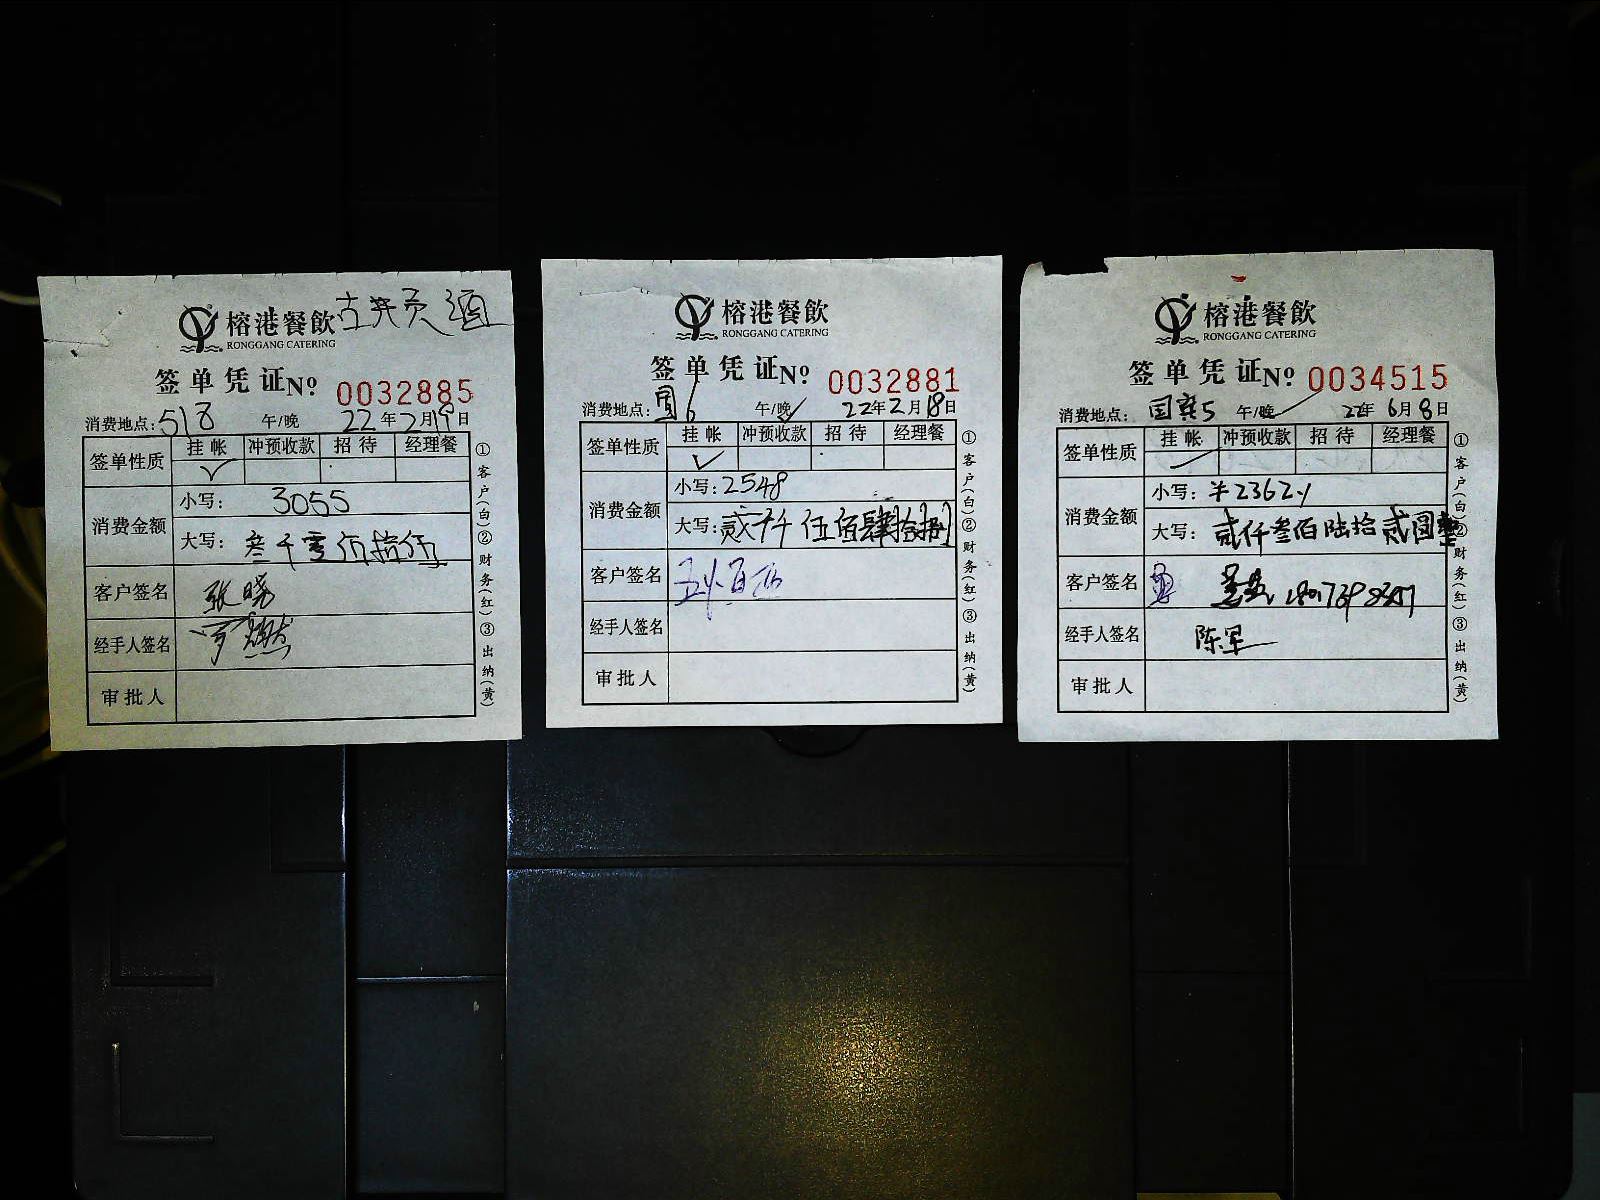 榕港餐飲 古井贡酒
RONGGANG CATERING
签单凭证No 0032885
消费地点：518 午/晚 22年2月19日
签单性质 挂帐 冲预收款 招待 经理餐
✓
消费金额 小写：3055
大写：叁千零伍拾伍
客户签名 张晓
经手人签名
审批人
①客户(白)②财务(红)③出纳(黄)
榕港餐飲
RONGGANG CATERING
签单凭证No 0032881
消费地点：国6 午/晚✓ 22年2月18日
签单性质 挂帐 冲预收款 招待 经理餐
✓
消费金额 小写：2548
大写：贰仟伍佰肆拾捌
客户签名
经手人签名
审批人
①客户(白)②财务(红)③出纳(黄)
榕港餐飲
RONGGANG CATERING
签单凭证No 0034515
消费地点：国宾5 午/晚 22年6月8日
签单性质 挂帐 冲预收款 招待 经理餐
消费金额 小写：¥2362
大写：贰仟叁佰陆拾贰圆整
客户签名
经手人签名 陈军
审批人
①客户(白)②财务(红)③出纳(黄)